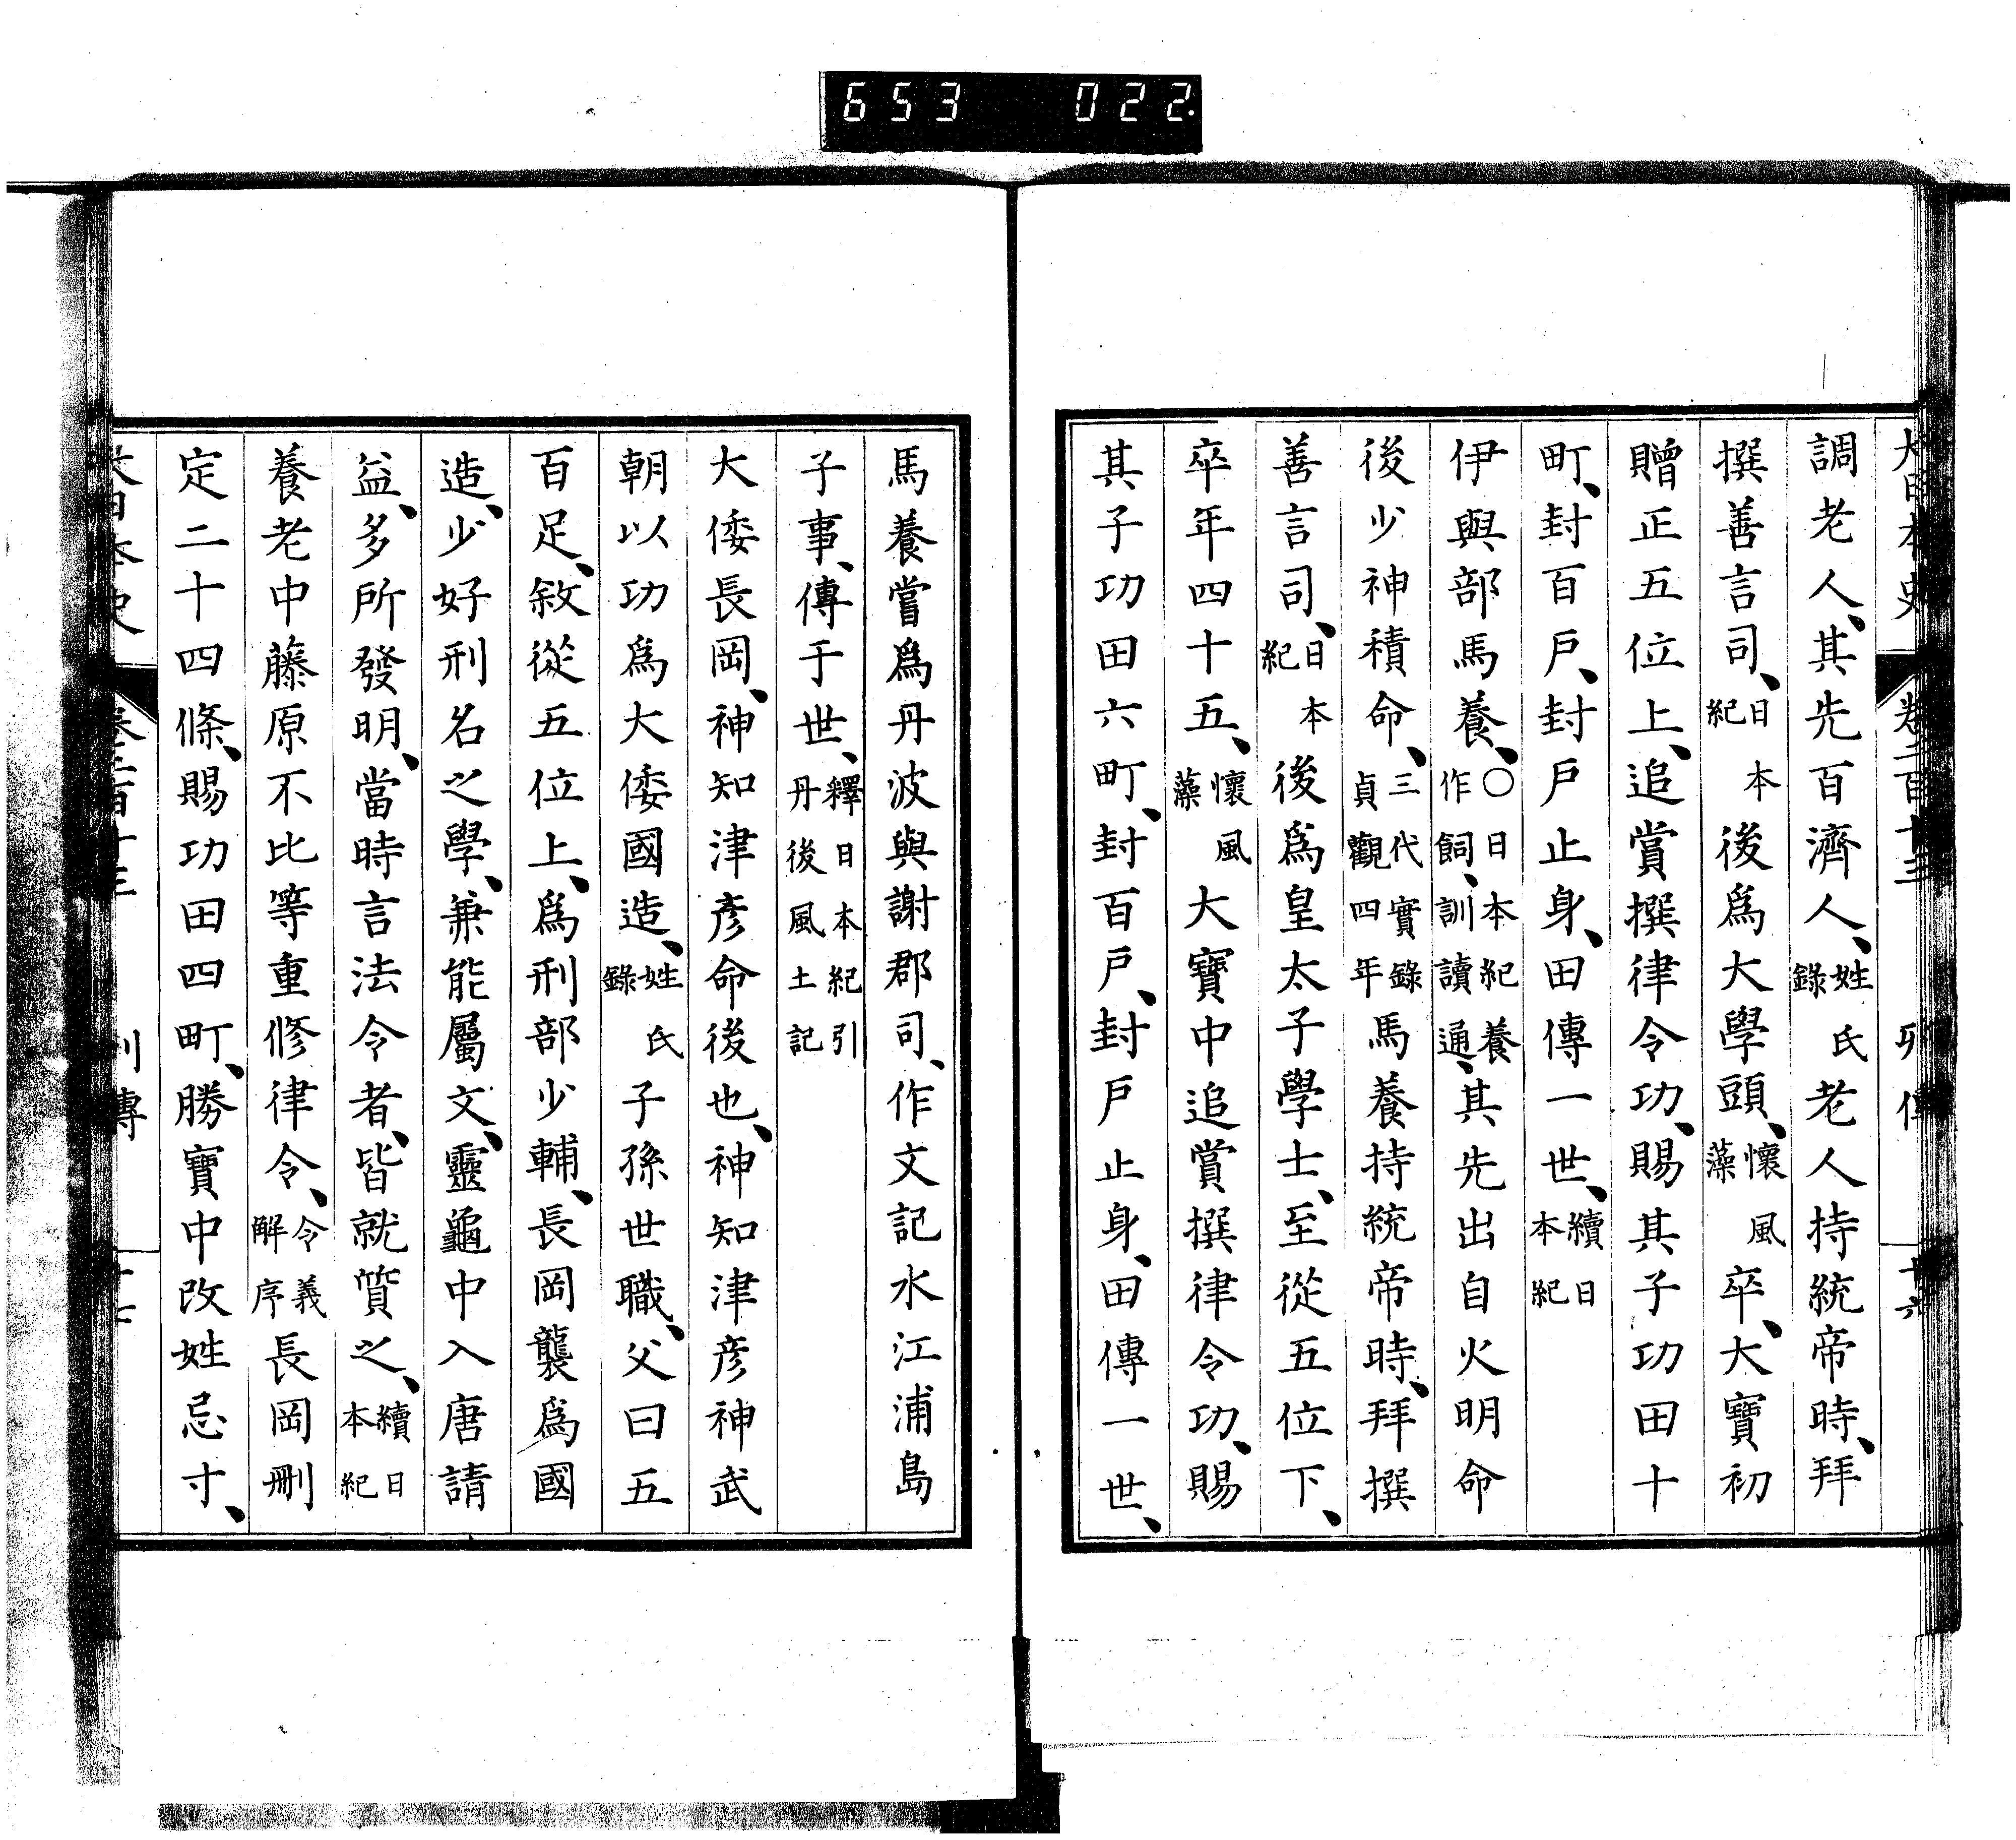 653 022
大日本史 卷二百十三 列傳 十六
調老人、其先百濟人、姓氏錄老人持統帝時、拜
撰善言司、日本紀後爲大學頭、懷風藻卒、大寶初
贈正五位上、追賞撰律令功、賜其子功田十
町、封百戶、封戶止身、田傳一世、續日本紀
伊與部馬養、○日本紀養作飼、訓讀通、其先出自火明命
後少神積命、三代實錄貞觀四年馬養持統帝時、拜撰
善言司、日本紀後爲皇太子學士、至從五位下、
卒年四十五、懷風藻大寶中追賞撰律令功、賜
其子功田六町、封百戶、封戶止身、田傳一世、
馬養嘗爲丹波與謝郡司、作文記水江浦島
子事、傳于世、釋日本紀引丹後風土記
大倭長岡、神知津彦命後也、神知津彦神武
朝以功爲大倭國造、姓氏錄子孫世職、父曰五
百足、敘從五位上、爲刑部少輔、長岡襲爲國
造、少好刑名之學、兼能屬文、靈龜中入唐請
益、多所發明、當時言法令者、皆就質之、續日本紀
養老中藤原不比等重修律令、令義解序長岡刪
定二十四條、賜功田四町、勝寶中改姓忌寸、
大日本史 卷二百十三 列傳 十七